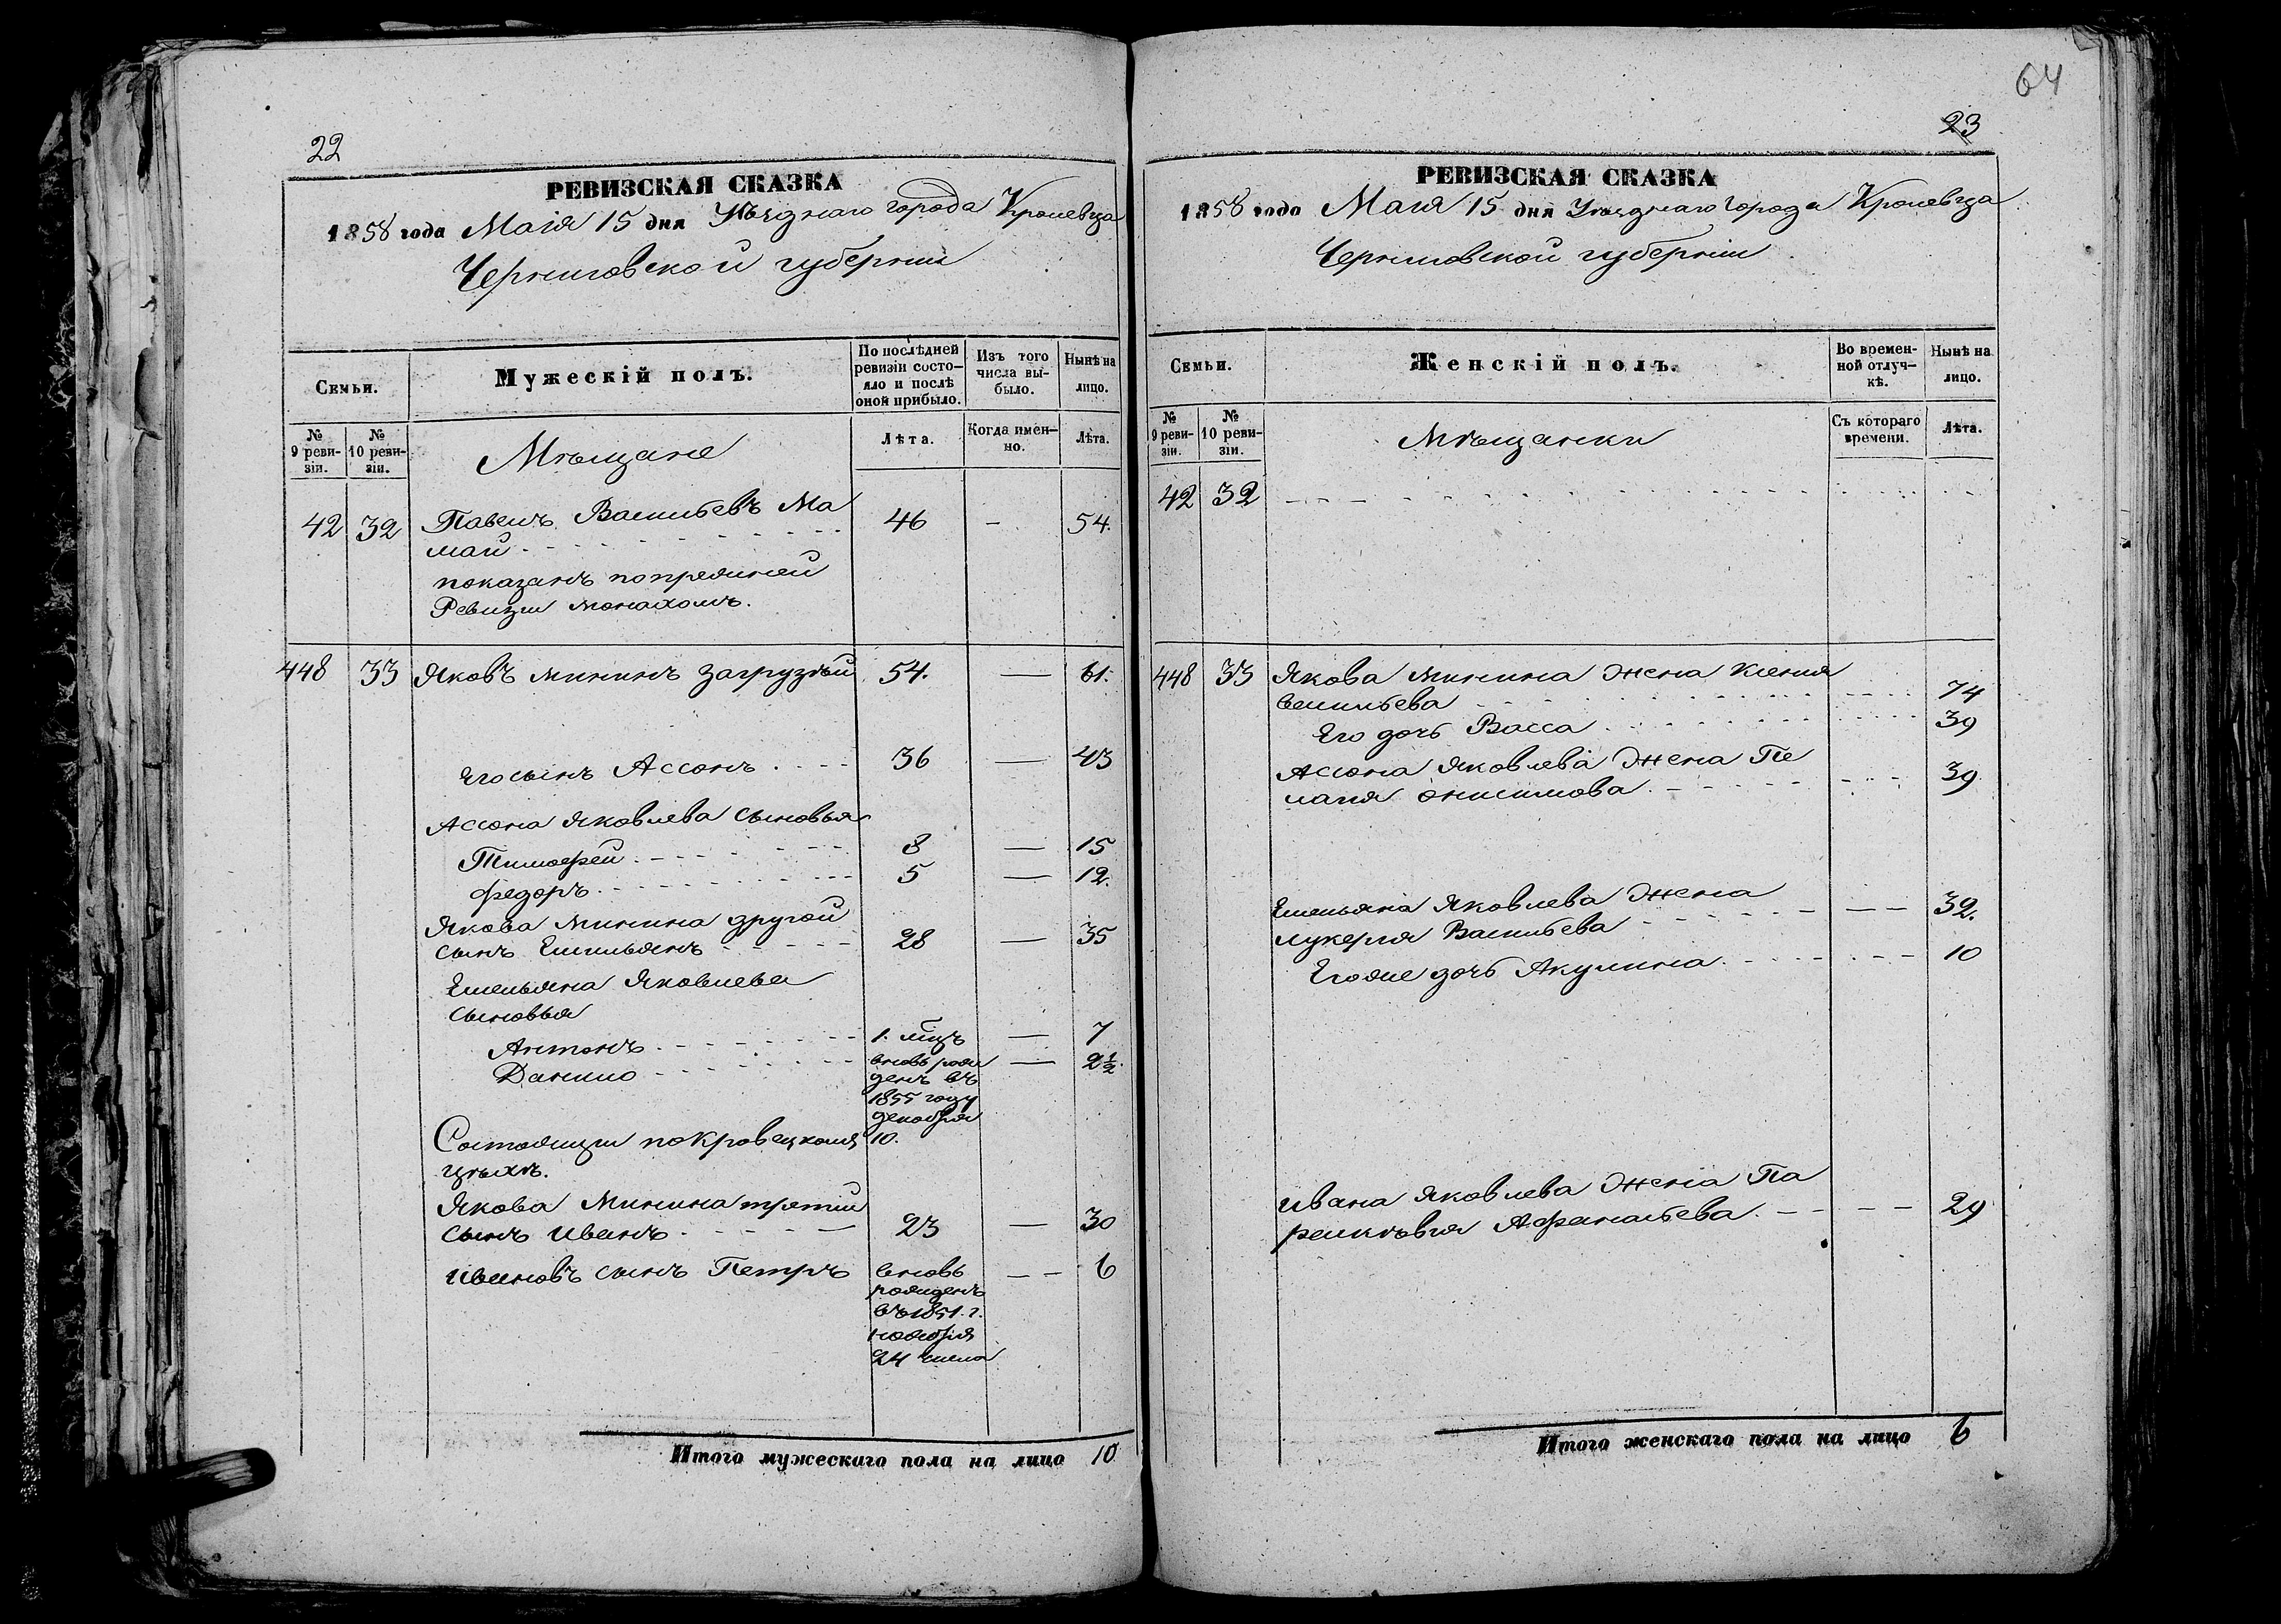 22
РЕВИЗСКАЯ СКАЗКА
1858 года Маія 15 дня Уѣзднаго города Кролевца
Черниговской губерніи
Семьи.
Мужескій полъ.
По послѣдней ревизіи состо-
яло и послѣ
оной прибыло.
Изъ того
числа вы-
было.
Нынѣ на
лицо.
№
9 реви-
зіи.
№
10 реви-
зіи.
Мѣщане
Лѣта.
Когда имен-
но.
Лѣта.
42 32 Павелъ Васильевъ Ма 46 - 54.
май
показанъ попрежней
Ревизіи монахомъ.
448 33 Яковъ Мининъ Загрузкѣй 54. — 61.
Его сынъ Ассонъ 36 — 43
Ассона Яковлева сыновья
Тимофей 8 — 15
Федоръ 5 — 12.
Якова Минина другой
сынъ Емильянъ 28 — 35
Емельяна Яковлева
сыновья
Антонъ 1. мцъ — 7
Данило вновь рож — 2½
денъ въ
1855 году
декабря
Состоящіи по Кровецкому 10.
цѣхъ.
Якова Минина третій
сынъ Иванъ 23 — 30
Ивановъ сынъ Петръ вновь — — 6
рожденъ
въ 1851. г.
ноября
24 числа
Итого мужескаго пола на лицо 10
64
23
РЕВИЗСКАЯ СКАЗКА
1858 года Маія 15 дня Уѣзднаго города Кролевца
Черниговской губерніи
Семьи.
Женскій полъ.
Во времен-
ной отлуч-
кѣ.
Нынѣ на
лицо.
№
9 реви-
зіи.
№
10 реви-
зіи.
Мѣщанки
Съ котораго
времени.
Лѣта.
42 32
448 33 Якова Минина жена Ксенія
Васильева 74
Его дочь Васса 39
Ассона Яковлева жена Пе
лагія Онисимова 39
Емельяна Яковлева жена
Лукерія Васильева — — 32.
Его же дочь Акулина 10
Ивана Яковлева жена Па
раскѣвія Афанасьева 29
Итого женскаго пола на лицо 6